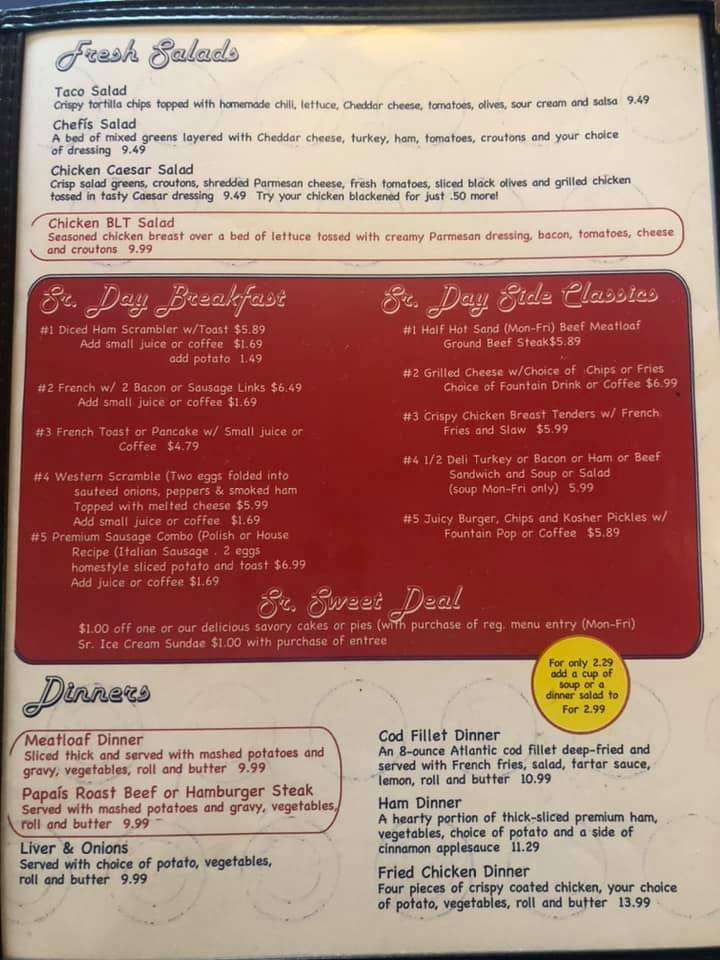 Fresh Salads
Taco Salad
Crispy tortilla chips topped with homemade chili, lettuce, Cheddar cheese, tomatoes, olives, sour cream and salsa 9.49
Chefís Salad
A bed of mixed greens layered with Cheddar cheese, turkey, ham, tomatoes, croutons and your choice
of dressing 9.49
Chicken Caesar Salad
Crisp salad greens, croutons, shredded Parmesan cheese, fresh tomatoes, sliced black olives and grilled chicken
tossed in tasty Caesar dressing 9.49 Try your chicken blackened for just .50 more!
Chicken BLT Salad
Seasoned chicken breast over a bed of lettuce tossed with creamy Parmesan dressing, bacon, tomatoes, cheese
and croutons 9.99
Sr. Day Breakfast
#1 Diced Ham Scrambler w/Toast $5.89
Add small juice or coffee $1.69
add potato 1.49
#2 French w/ 2 Bacon or Sausage Links $6.49
Add small juice or coffee $1.69
#3 French Toast or Pancake w/ Small juice or
Coffee $4.79
#4 Western Scramble (Two eggs folded into
sauteed onions, peppers & smoked ham
Topped with melted cheese $5.99
Add small juice or coffee $1.69
#5 Premium Sausage Combo (Polish or House
Recipe (Italian Sausage . 2 eggs
homestyle sliced potato and toast $6.99
Add juice or coffee $1.69
Sr. Day Side Classics
#1 Half Hot Sand (Mon-Fri) Beef Meatloaf
Ground Beef Steak$5.89
#2 Grilled Cheese w/Choice of Chips or Fries
Choice of Fountain Drink or Coffee $6.99
#3 Crispy Chicken Breast Tenders w/ French
Fries and Slaw $5.99
#4 1/2 Deli Turkey or Bacon or Ham or Beef
Sandwich and Soup or Salad
(soup Mon-Fri only) 5.99
#5 Juicy Burger, Chips and Kosher Pickles w/
Fountain Pop or Coffee $5.89
Sr. Sweet Deal
$1.00 off one or our delicious savory cakes or pies (with purchase of reg. menu entry (Mon-Fri)
Sr. Ice Cream Sundae $1.00 with purchase of entree
For only 2.29
add a cup of
soup or a
dinner salad to
For 2.99
Dinners
Meatloaf Dinner
Sliced thick and served with mashed potatoes and
gravy, vegetables, roll and butter 9.99
Papaís Roast Beef or Hamburger Steak
Served with mashed potatoes and gravy, vegetables,
roll and butter 9.99
Liver & Onions
Served with choice of potato, vegetables,
roll and butter 9.99
Cod Fillet Dinner
An 8-ounce Atlantic cod fillet deep-fried and
served with French fries, salad, tartar sauce,
lemon, roll and butter 10.99
Ham Dinner
A hearty portion of thick-sliced premium ham,
vegetables, choice of potato and a side of
cinnamon applesauce 11.29
Fried Chicken Dinner
Four pieces of crispy coated chicken, your choice
of potato, vegetables, roll and butter 13.99